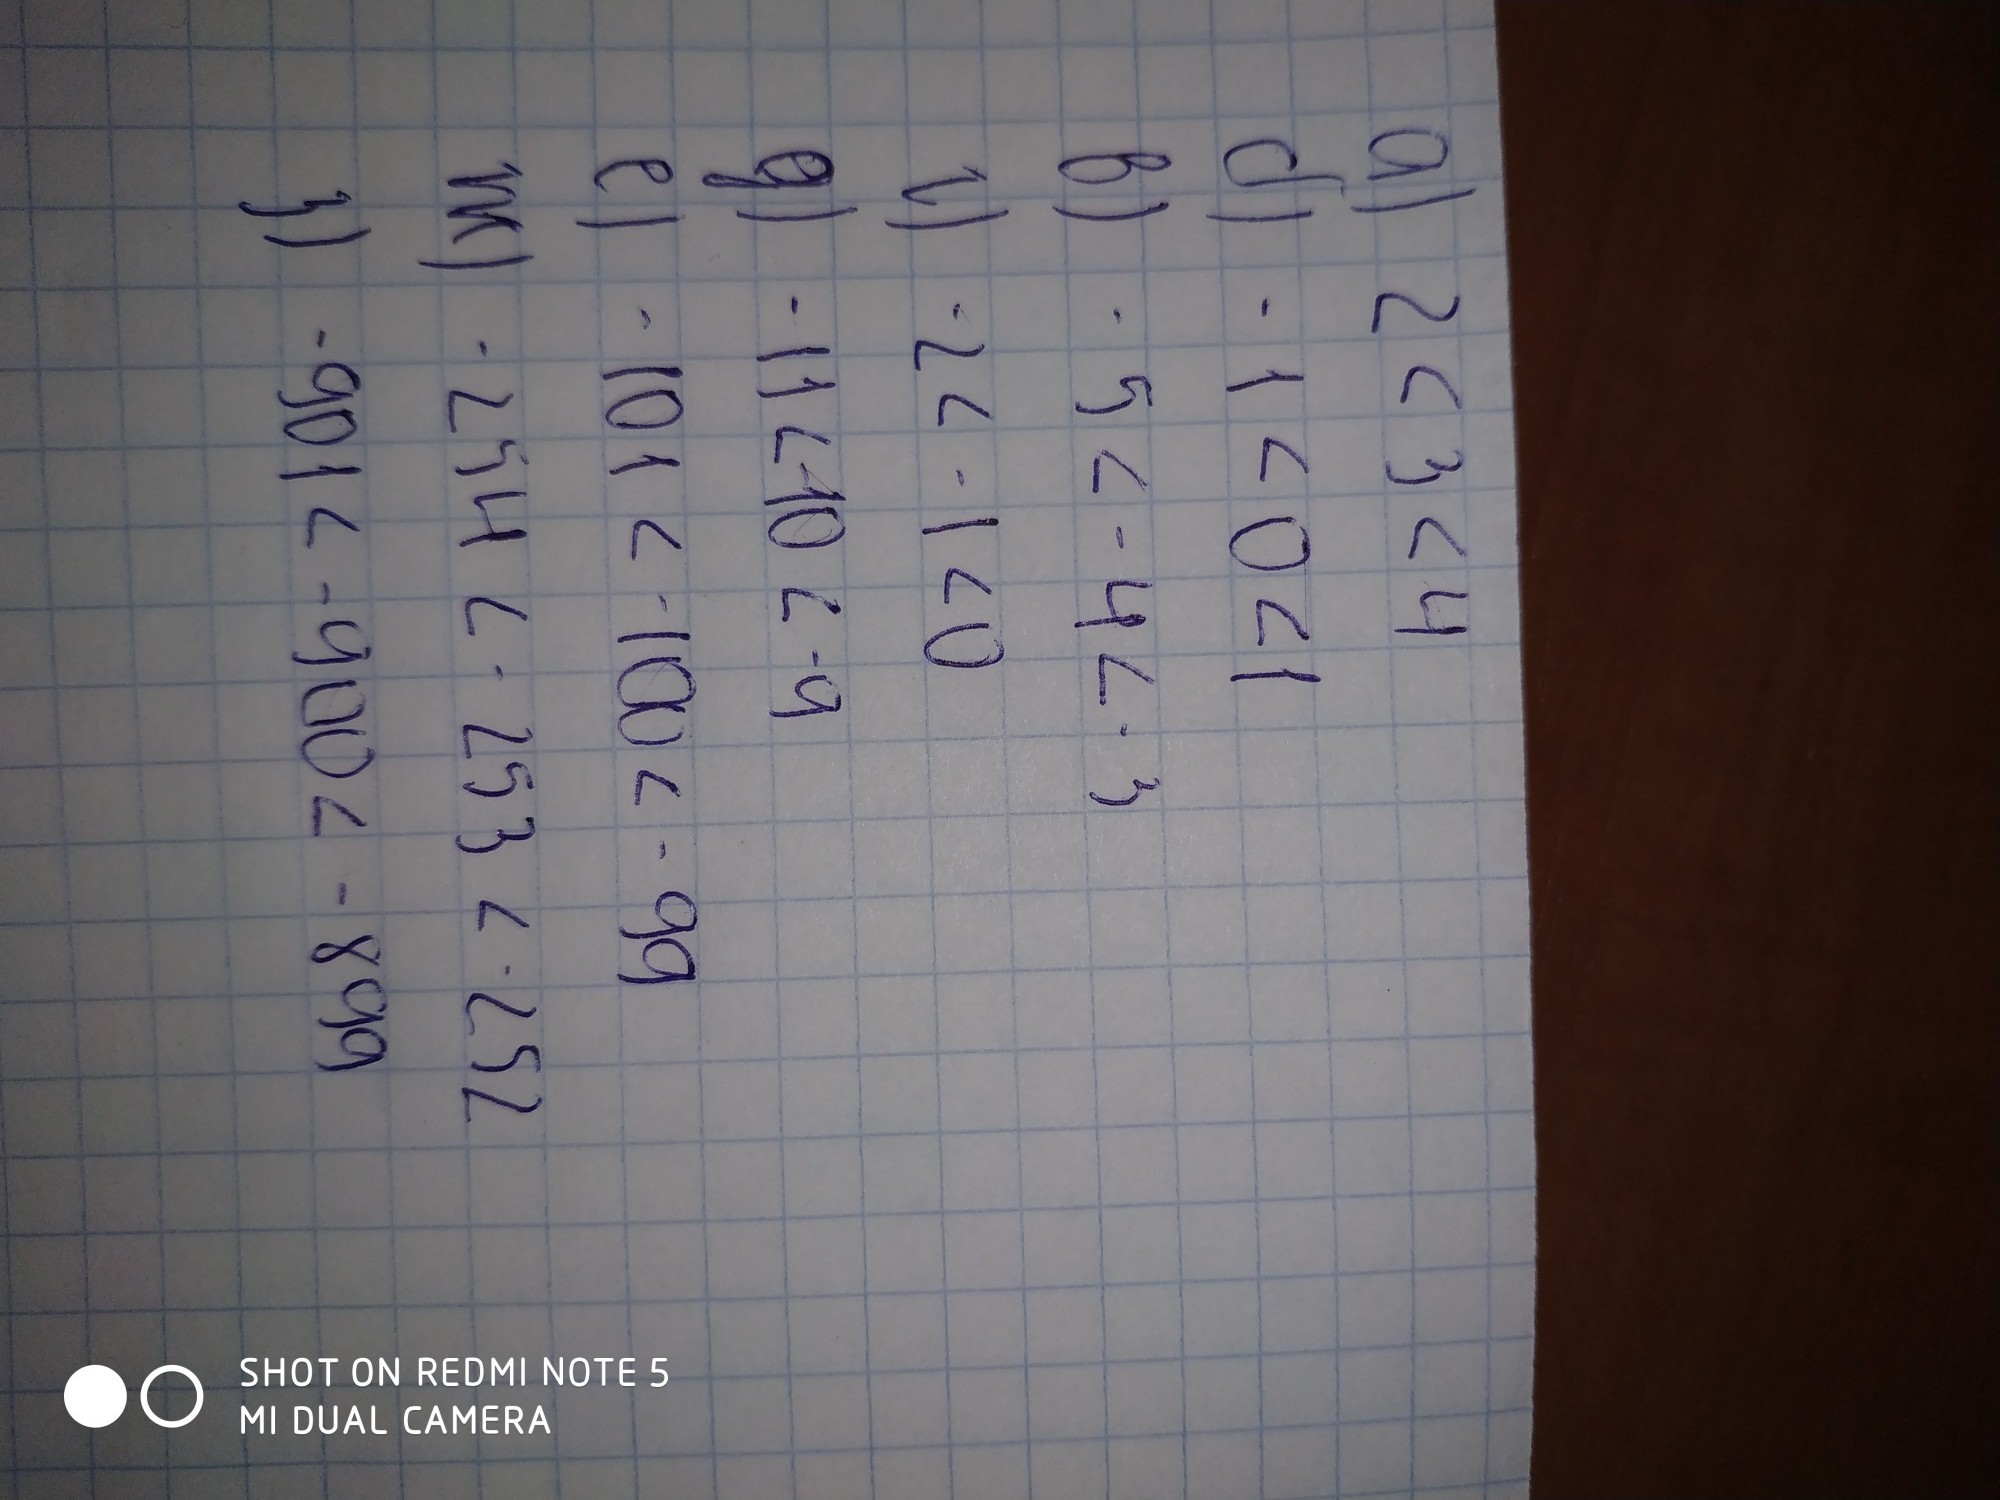 а) 2 < 3 < 4
б) -1 < 0 < 1
в) -5 < -4 < -3
г) -2 < -1 < 0
д) -11 < -10 < -9
е) -101 < -100 < -99
ж) -254 < -253 < -252
з) -901 < -900 < -899
SHOT ON REDMI NOTE 5
MI DUAL CAMERA